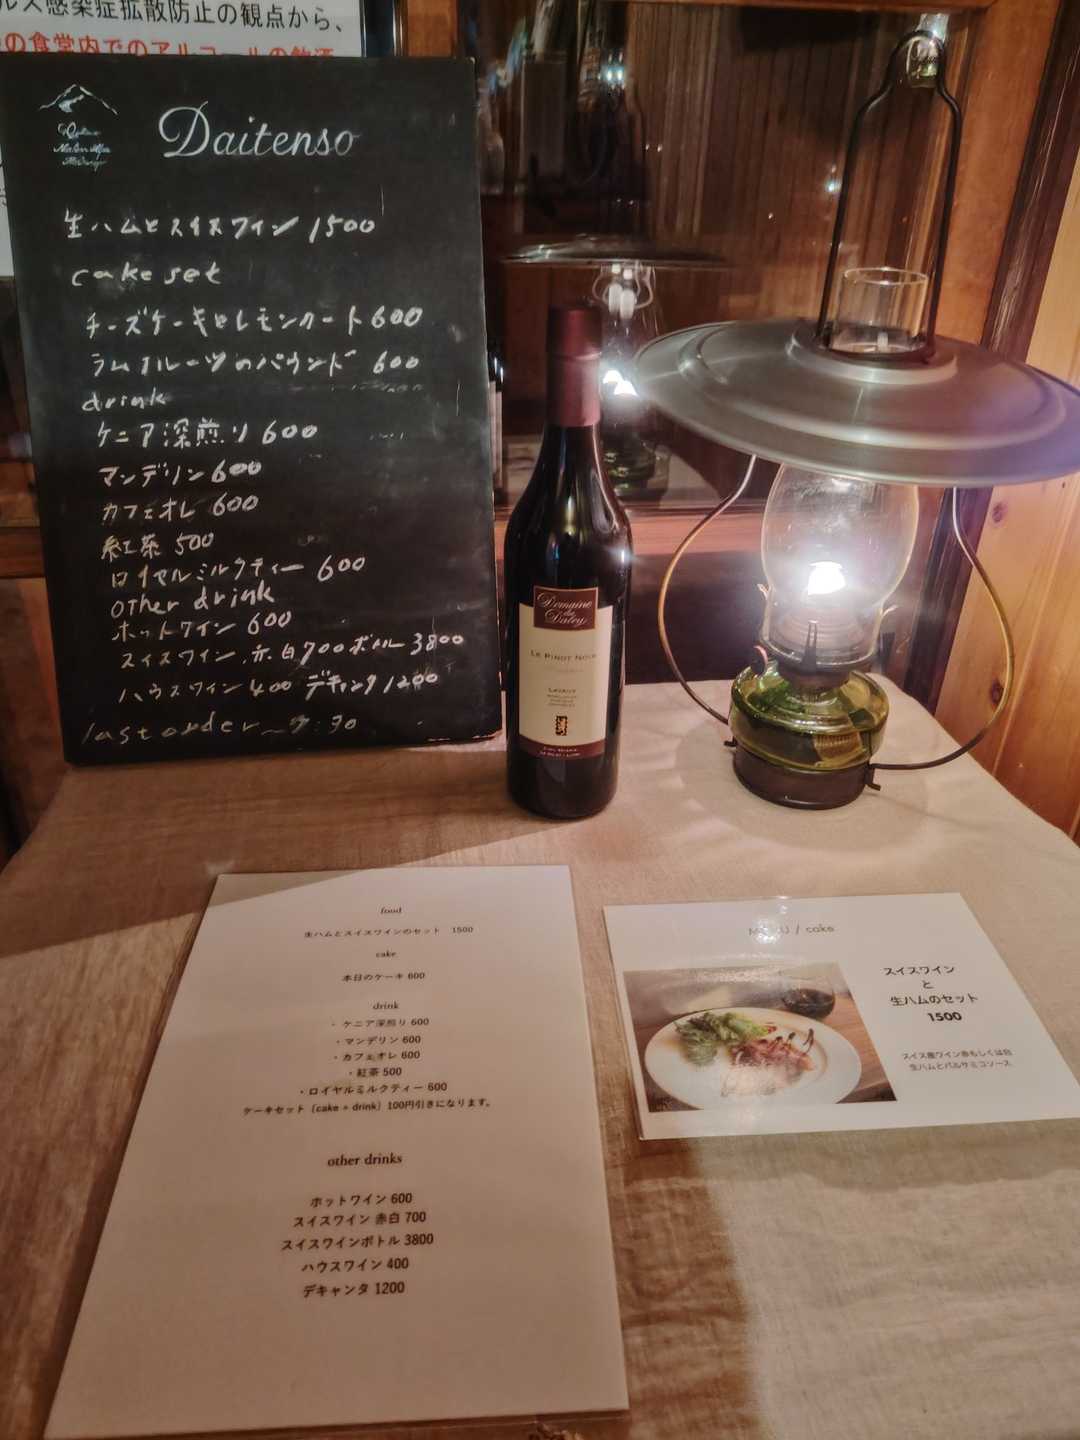 ルス感染症拡散防止の観点から、
の食堂内でのアルコールの飲酒
Daitenso
生ハムとスイスワイン 1500
cake set
チーズケーキとレモンタート 600
ラムフルーツのパウンド 600
drink
ケニア深煎り 600
マンデリン 600
カフェオレ 600
紅茶 500
ロイヤルミルクティー 600
other drink
ホットワイン 600
スイスワイン.赤.白 700 ボトル 3800
ハウスワイン 400 デキャンタ 1200
last order 〜 7:30
Domaine
du
Daley
LE PINOT NOIR
LAVAUX
food
生ハムとスイスワインのセット 1500
cake
本日のケーキ 600
drink
・ケニア深煎り 600
・マンデリン 600
・カフェオレ 600
・紅茶 500
・ロイヤルミルクティー 600
ケーキセット（cake + drink）100円引きになります。
other drinks
ホットワイン 600
スイスワイン 赤白 700
スイスワインボトル 3800
ハウスワイン 400
デキャンタ 1200
/ cake
スイスワイン
と
生ハムのセット
1500
スイス産ワイン赤もしくは白
生ハムとバルサミコソース